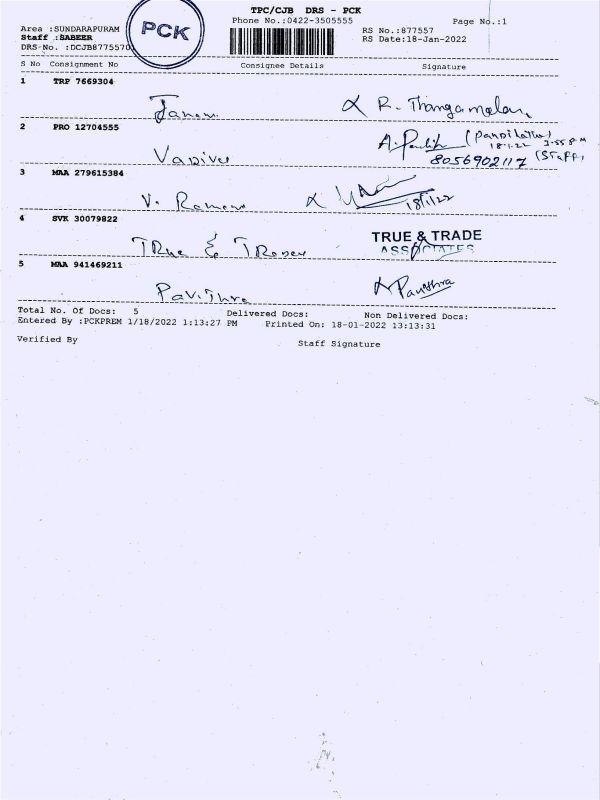 TPC/CJB DRS - PCK
Phone No.:0422-3505555 Page No.:1
Area :SUNDARAPURAM
RS No.:877557
Staff :SABEER
RS Date:18-Jan-2022
DRS-No. :DCJB8775570
PCK
S No Consignment No Consignee Details Signature
1 TRP 7669304
R. Thangamalar
2 PRO 12704555
Vadivu
8056902117 (Staff)
18.1.22 3.55 PM
3 MAA 279615384
V. Raman
18/1/22
4 SVK 30079822
TRue & TRades
TRUE & TRADE
ASSOCIATES
5 MAA 941469211
Pavithra Pavithra
Total No. Of Docs: 5 Delivered Docs: Non Delivered Docs:
Entered By :PCKPREM 1/18/2022 1:13:27 PM Printed On: 18-01-2022 13:13:31
Verified By Staff Signature